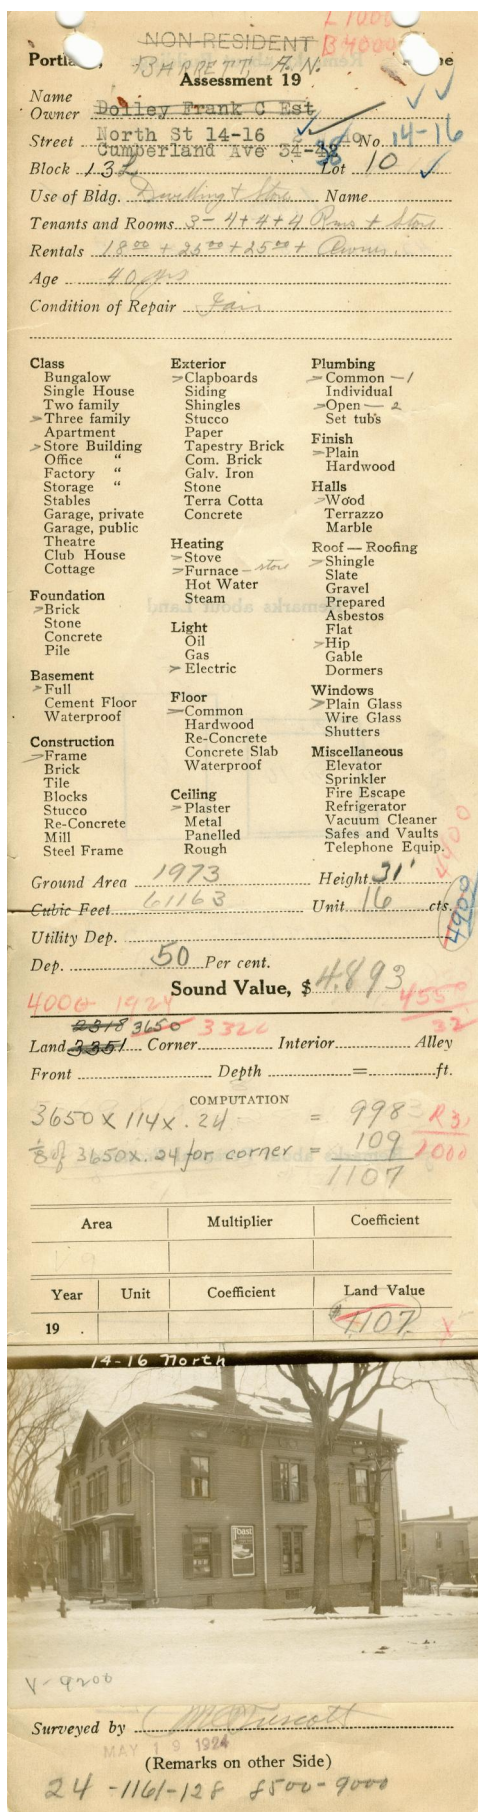 L 1000
NON-RESIDENT B 4000
Portland, BARRETT, A.N. Maine
Assessment 19
Name
Owner Dolley Frank C Est
Street North St 14-16 No. 14-16
Cumberland Ave 34-
Block 13L Lot 10
Use of Bldg. Dwelling + Store Name
Tenants and Rooms 3-4+4+4 Rms + Store
Rentals 18.00 + 25.00 + 25.00 + Owner
Age 40 yrs
Condition of Repair Fair
Class
Bungalow
Single House
Two family
>Three family
Apartment
>Store Building
Office "
Factory "
Storage "
Stables
Garage, private
Garage, public
Theatre
Club House
Cottage
Foundation
>Brick
Stone
Concrete
Pile
Basement
>Full
Cement Floor
Waterproof
Construction
>Frame
Brick
Tile
Blocks
Stucco
Re-Concrete
Mill
Steel Frame
Exterior
>Clapboards
Siding
Shingles
Stucco
Paper
Tapestry Brick
Com. Brick
Galv. Iron
Stone
Terra Cotta
Concrete
Heating
>Stove
>Furnace - store
Hot Water
Steam
Light
Oil
Gas
>Electric
Floor
>Common
Hardwood
Re-Concrete
Concrete Slab
Waterproof
Ceiling
>Plaster
Metal
Panelled
Rough
Plumbing
>Common - 1
Individual
>Open - 2
Set tubs
Finish
>Plain
Hardwood
Halls
>Wood
Terrazzo
Marble
Roof — Roofing
>Shingle
Slate
Gravel
Prepared
Asbestos
Flat
>Hip
Gable
Dormers
Windows
>Plain Glass
Wire Glass
Shutters
Miscellaneous
Elevator
Sprinkler
Fire Escape
Refrigerator
Vacuum Cleaner
Safes and Vaults
Telephone Equip.
4900
Ground Area 1973 Height 31'
Cubic Feet 61163 Unit 16 cts.
4900
Utility Dep.
Dep. 50 Per cent.
Sound Value, $ 4893
4000 1924 4550
2318 3650 3320 32
Land 3351 Corner Interior Alley
Front Depth = ft.
COMPUTATION
3650 x 114 x .24 = 998
1/8 of 3650 x .24 for corner = 109 1000
1107
Area Multiplier Coefficient
Year Unit Coefficient Land Value
19 $1107.
14-16 North
Toast
V-9200
Surveyed by
MAY 19 1924
(Remarks on other Side)
24 -1161-128 8500-9000